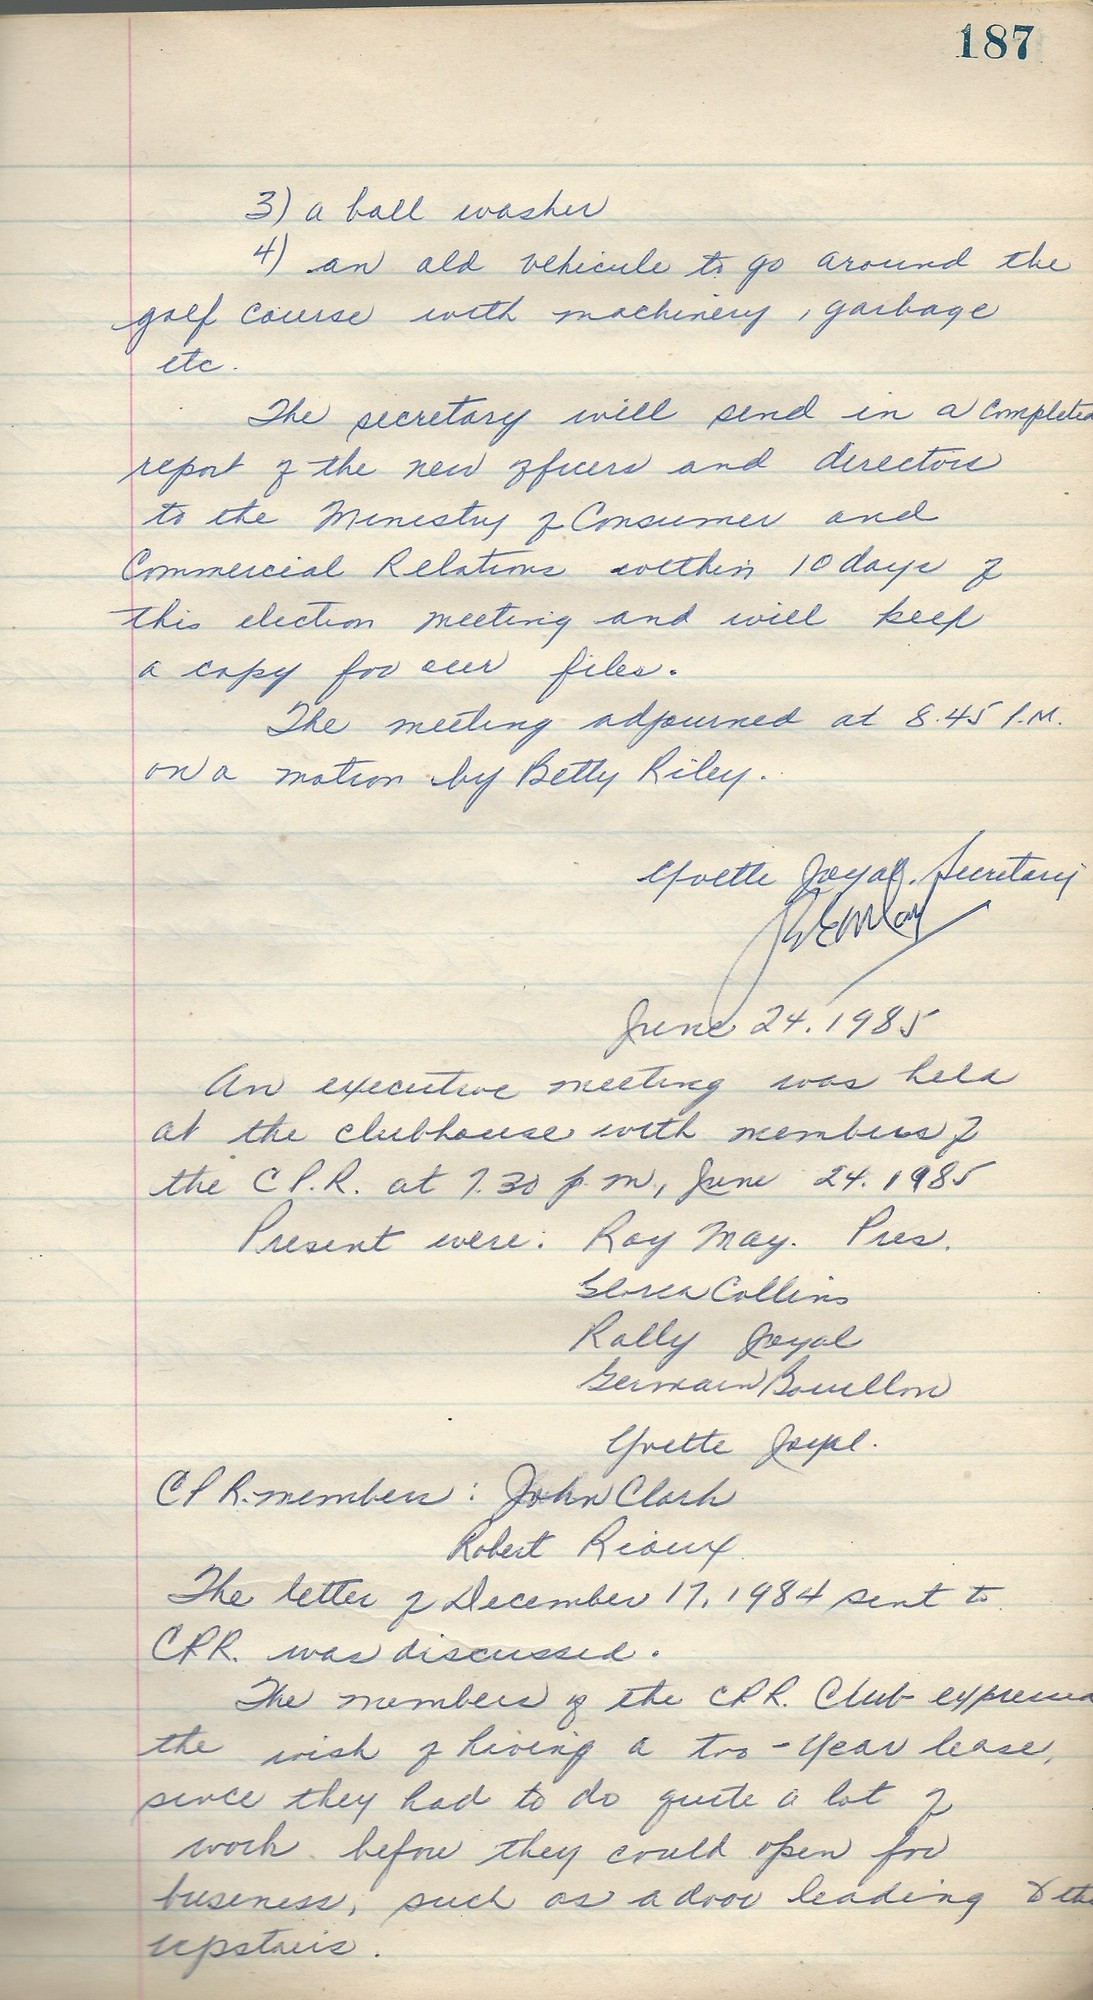 187
3) a ball washer
4) an old vehicule to go around the
golf course with machinery, garbage
etc.
The secretary will send in a completed
report of the new officers and directors
to the Ministry of Consumer and
Commercial Relations within 10 days of
this election meeting and will keep
a copy for our files.
The meeting adjourned at 8.45 P.M.
on a motion by Betty Riley.
Yvette Joyal, Secretary
June 24, 1985
An executive meeting was held
at the clubhouse with members of
the C P.R. at 7.30 p.m, June 24. 1985
Present were: Roy May. Pres.
Gloria Collins
Rolly Joyal
Germain Bouillon
Yvette Joyal.
C P R. members : John Clark
Robert Rioux
The letter of December 17, 1984 sent to
CPR. was discussed.
The members of the CPR. Club expressed
the wish of having a two-year lease,
since they had to do quite a lot of
work before they could open for
business, such as a door leading to the
upstairs.